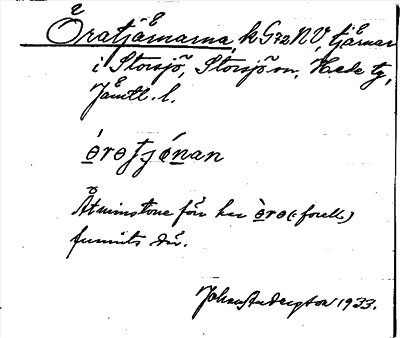 Öratjärnarna, k G32NV, tjärnar
i Storsjö, Storsjö sn, Hede tg,
Jämtl. l.
òrɵtjónan
Åtminstone förr har òrɵ (forell)
funnits där.
Johan Anderzton 1933.